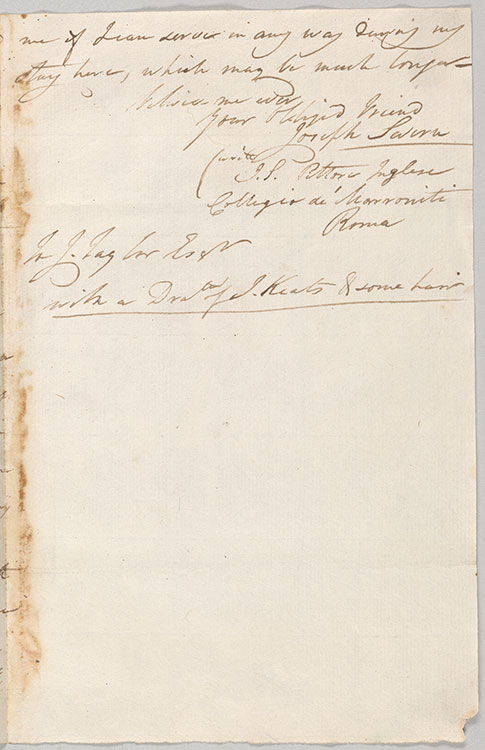 me if I can serve in any way during my
stay here, which may be much longer—
believe me ever
Your Obliged Friend
Joseph Severn
(write
J.S. Pittore Inglese
Collegio de' Marroniti
Roma
To J. Taylor Esqr
with a Draw of J. Keats & some hair